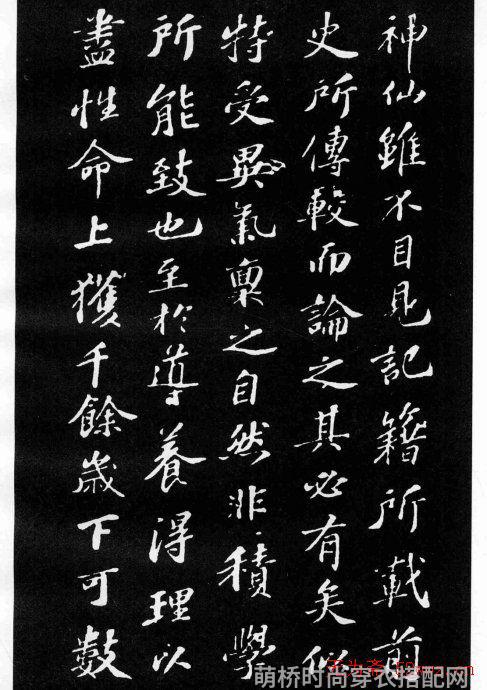 神仙雖不目見記籍所載前
史所傳較而論之其必有矣似
特受異氣稟之自然非積學
所能致也至於導養得理以
盡性命上獲千餘歲下可數
萌桥时尚穿衣搭配网